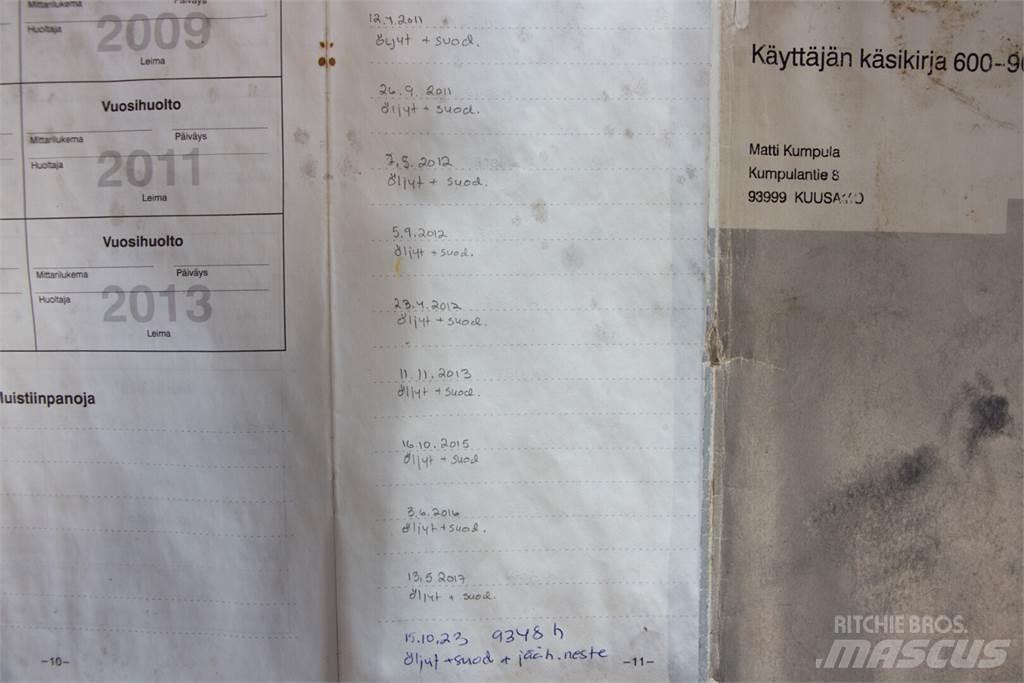 Mittarilukema
Huoltaja
2009
Leima
Vuosihuolto
Mittarilukema
Päiväys
Huoltaja
2011
Leima
Vuosihuolto
Mittarilukema
Päiväys
Huoltaja
2013
Leima
luistiinpanoja
-10-
12.4.2011
öljyt + suod.
26.9.2011
öljyt + suod.
7.5.2012
öljyt + suod.
5.9.2012
öljyt + suod.
23.4.2012
öljyt + suod.
11.11.2013
öljyt + suod.
16.10.2015
öljyt + suod
3.6.2016
öljyt + suod.
13.5.2017
öljyt + suod.
15.10.23 9348 h
öljyt + suod + jääh.neste
-11-
Käyttäjän käsikirja 600-9
Matti Kumpula
Kumpulantie 8
93999 KUUSAMO
RITCHIE BROS.
MASCUS